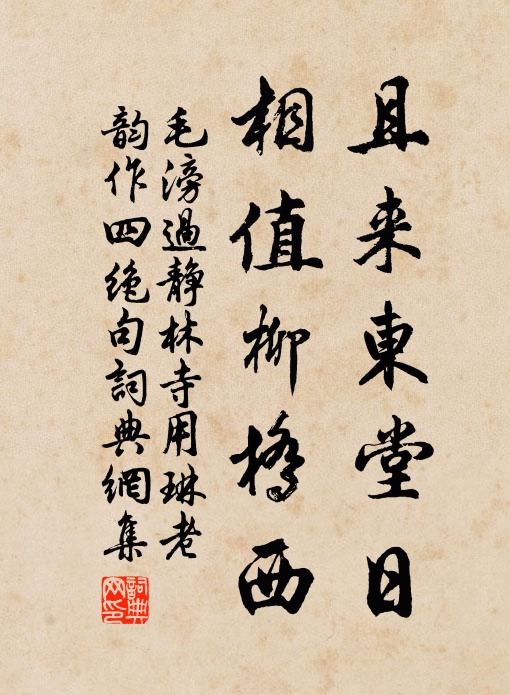 且来東堂日
相值柳橋西
毛滂過靜林寺用琳老
韵作四绝句詞典網集
詞典网印